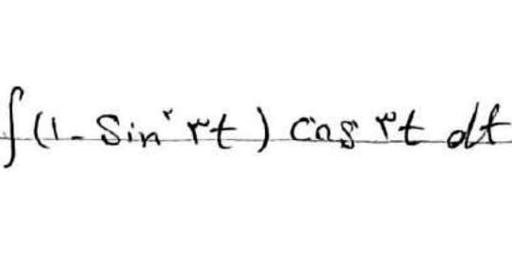 ∫(۱- Sin^۲ ۳t) cos ۳t dt